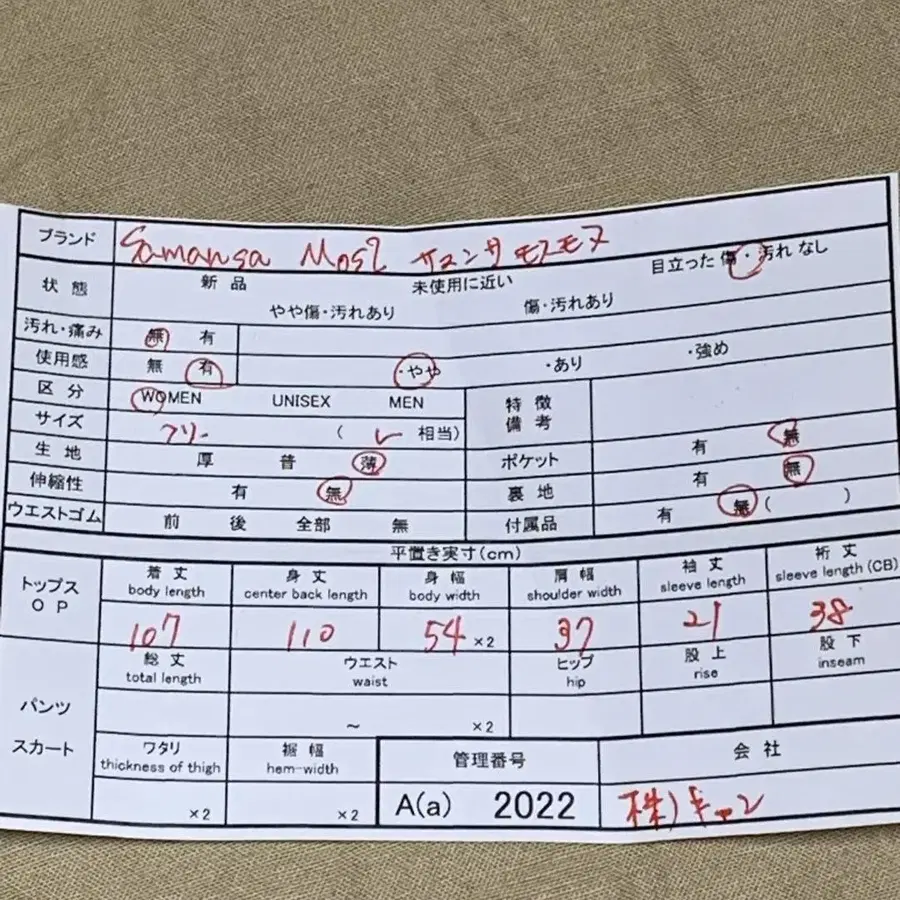 ブランド Samansa Mos2 サマンサモスモス
状態 新品 未使用に近い 目立った傷・汚れなし
やや傷・汚れあり 傷・汚れあり
汚れ・痛み 無 有
使用感 無 有 ・やや ・あり ・強め
区分 WOMEN UNISEX MEN 特徴備考
サイズ フリー ( L 相当)
生地 厚 普 薄 ポケット 有 無
伸縮性 有 無 裏地 有 無
ウエストゴム 前 後 全部 無 付属品 有 無 ( )
平置き実寸(cm)
トップス OP
着丈 身丈 身幅 肩幅 袖丈 裄丈
body length center back length body width shoulder width sleeve length sleeve length (CB)
107 110 54 ×2 37 21 38
パンツ スカート
総丈 ウエスト ヒップ 股上 股下
total length waist hip rise inseam
~ ×2
ワタリ 裾幅 管理番号 会社
thickness of thigh hem-width
×2 ×2 A(a) 2022 株)キャン